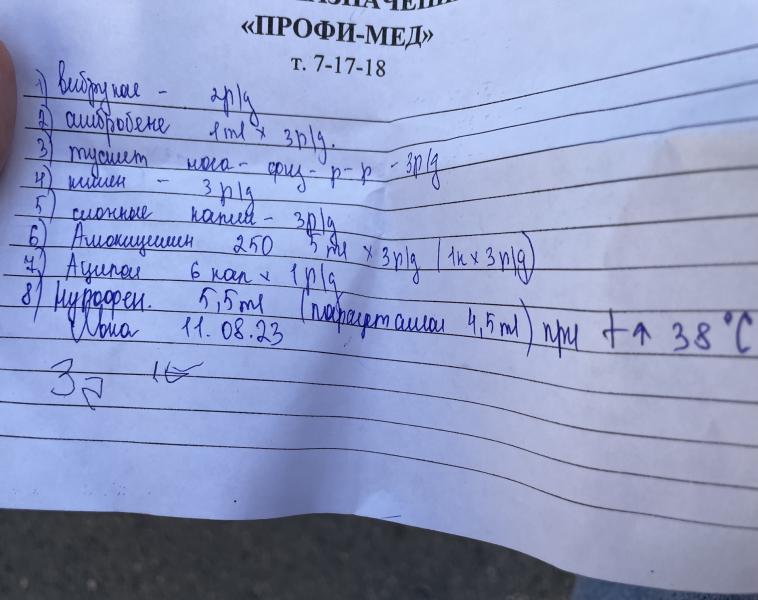 «ПРОФИ-МЕД»
т. 7-17-18
1) Виброкол - 2р/д
2) амбробене 1ml x 3р/д.
3) туалет носа - физ - р-р - 3р/д
4) - 3р/д
5) сложные капли - 3р/д
6) Амоксициллин 250 5ml x 3р/д (1к x 3р/д)
7) Аципол 6 кап x 1р/д
8) Нурофен. 5,5ml (парацетамол 4,5ml) при t↑ 38°C
Явка 11.08.23